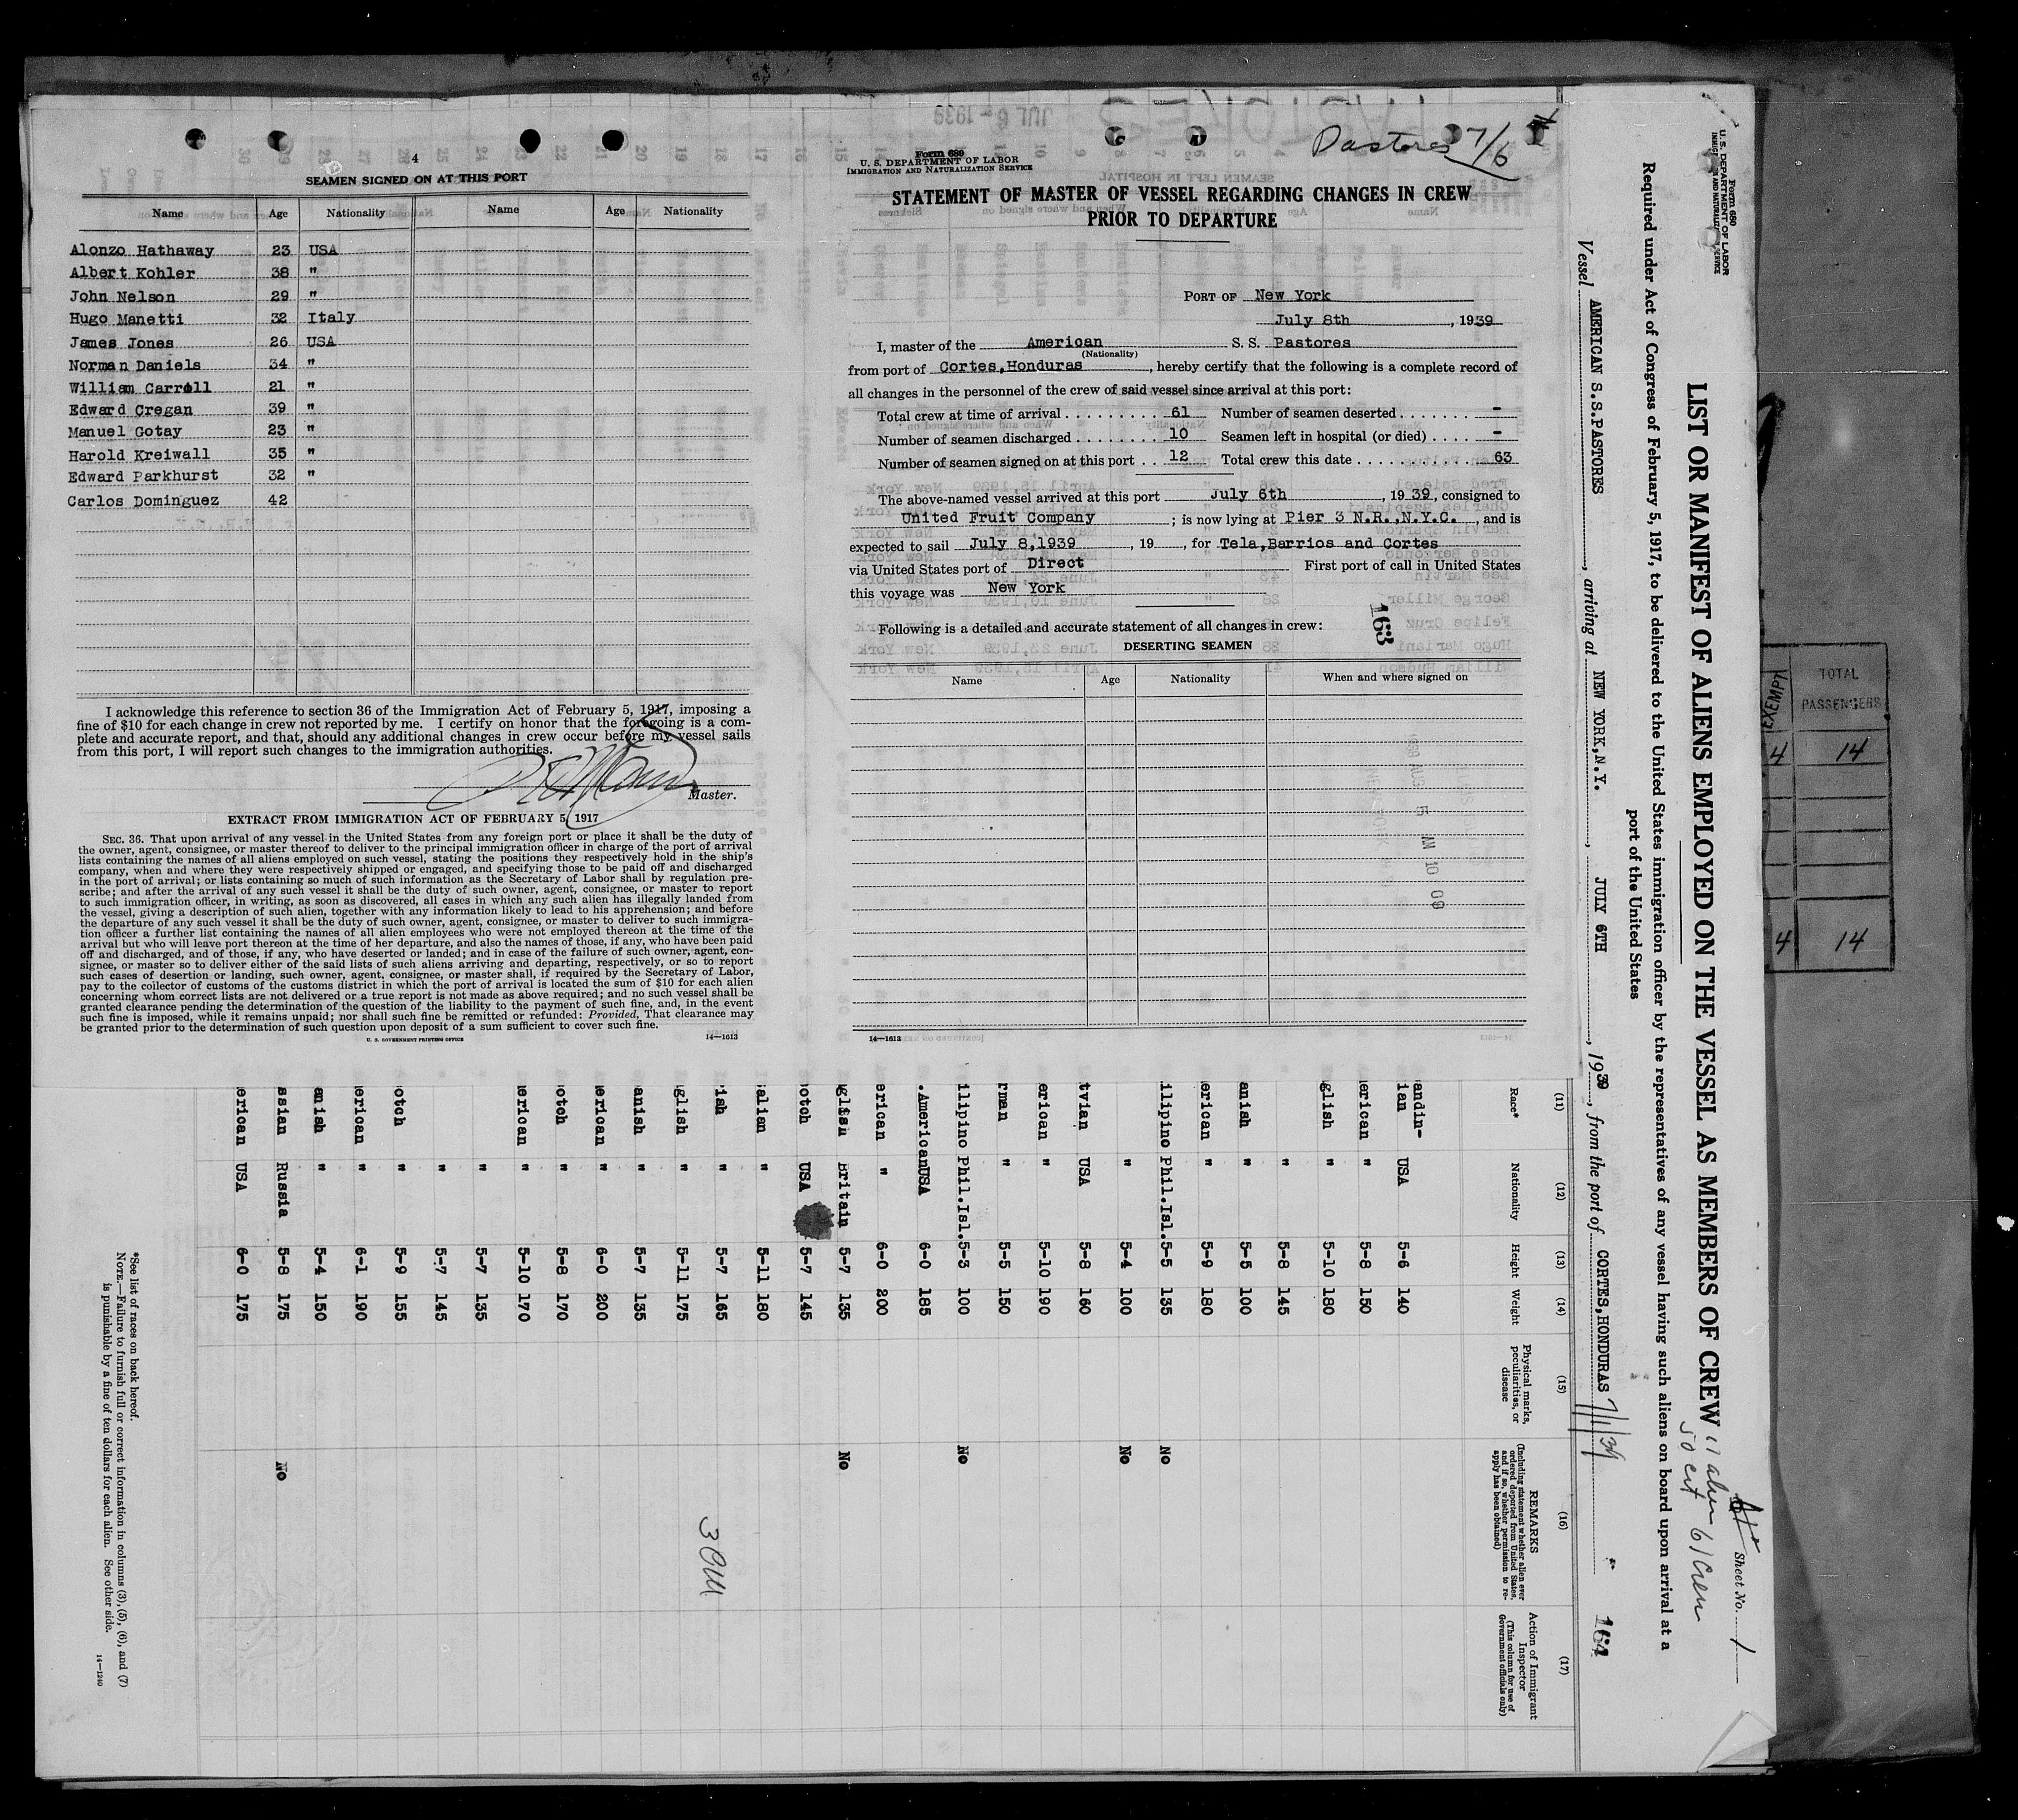 4
SEAMEN SIGNED ON AT THIS PORT
Name Age Nationality Name Age Nationality
Alonzo Hathaway 23 USA
Albert Kohler 38 "
John Nelson 29 "
Hugo Manetti 32 Italy
James Jones 26 USA
Norman Daniels 34 "
William Carroll 21 "
Edward Cregan 39 "
Manuel Gotay 23 "
Harold Kreiwall 35 "
Edward Parkhurst 32 "
Carlos Dominguez 42
I acknowledge this reference to section 36 of the Immigration Act of February 5, 1917, imposing a
fine of $10 for each change in crew not reported by me. I certify on honor that the foregoing is a com-
plete and accurate report, and that, should any additional changes in crew occur before my vessel sails
from this port, I will report such changes to the immigration authorities.
Master.
EXTRACT FROM IMMIGRATION ACT OF FEBRUARY 5, 1917
SEC. 36. That upon arrival of any vessel in the United States from any foreign port or place it shall be the duty of
the owner, agent, consignee, or master thereof to deliver to the principal immigration officer in charge of the port of arrival
lists containing the names of all aliens employed on such vessel, stating the positions they respectively hold in the ship's
company, when and where they were respectively shipped or engaged, and specifying those to be paid off and discharged
in the port of arrival; or lists containing so much of such information as the Secretary of Labor shall by regulation pre-
scribe; and after the arrival of any such vessel it shall be the duty of such owner, agent, consignee, or master to report
to such immigration officer, in writing, as soon as discovered, all cases in which any such alien has illegally landed from
the vessel, giving a description of such alien, together with any information likely to lead to his apprehension; and before
the departure of any such vessel it shall be the duty of such owner, agent, consignee, or master to deliver to such immigra-
tion officer a further list containing the names of all alien employees who were not employed thereon at the time of the
arrival but who will leave port thereon at the time of her departure, and also the names of those, if any, who have been paid
off and discharged, and of those, if any, who have deserted or landed; and in case of the failure of such owner, agent, con-
signee, or master so to deliver either of the said lists of such aliens arriving and departing, respectively, or so to report
such cases of desertion or landing, such owner, agent, consignee, or master shall, if required by the Secretary of Labor,
pay to the collector of customs of the customs district in which the port of arrival is located the sum of $10 for each alien
concerning whom correct lists are not delivered or a true report is not made as above required; and no such vessel shall be
granted clearance pending the determination of the question of the liability to the payment of such fine, and, in the event
such fine is imposed, while it remains unpaid; nor shall such fine be remitted or refunded: Provided, That clearance may
be granted prior to the determination of such question upon deposit of a sum sufficient to cover such fine.
U. S. GOVERNMENT PRINTING OFFICE 14—1613
Pastores 7/6
Form 689
U. S. DEPARTMENT OF LABOR
IMMIGRATION AND NATURALIZATION SERVICE
STATEMENT OF MASTER OF VESSEL REGARDING CHANGES IN CREW
PRIOR TO DEPARTURE
PORT OF New York
July 8th, 1939
I, master of the American S. S. Pastores
(Nationality)
from port of Cortes, Honduras, hereby certify that the following is a complete record of
all changes in the personnel of the crew of said vessel since arrival at this port:
Total crew at time of arrival . . . . . . . . . 61 Number of seamen deserted . . . . . . . -
Number of seamen discharged . . . . . . . . 10 Seamen left in hospital (or died) . . . . -
Number of seamen signed on at this port . . 12 Total crew this date . . . . . . . . . . . 63
The above-named vessel arrived at this port July 6th, 1939, consigned to
United Fruit Company; is now lying at Pier 3 N.R., N.Y.C., and is
expected to sail July 8,1939, 19, for Tela, Barrios and Cortes
via United States port of Direct First port of call in United States
this voyage was New York
Following is a detailed and accurate statement of all changes in crew:
163
DESERTING SEAMEN
Name Age Nationality When and where signed on
14—1613
Form 680
U. S. DEPARTMENT OF LABOR
IMMIGRATION AND NATURALIZATION SERVICE
Sheet No. 1
LIST OR MANIFEST OF ALIENS EMPLOYED ON THE VESSEL AS MEMBERS OF CREW
11 alien
50 cit 61 Crew
Required under Act of Congress of February 5, 1917, to be delivered to the United States immigration officer by the representatives of any vessel having such aliens on board upon arrival at a
port of the United States
Vessel AMERICAN S.S.PASTORES, arriving at NEW YORK,N.Y., JULY 6TH, 1939, from the port of CORTES,HONDURAS 7/1/39
164
(11) (12) (13) (14) (15) (16) (17)
Race* Nationality Height Weight Physical marks, peculiarities, or disease REMARKS (Including statement whether alien ever ordered deported from United States, and if so, whether permission to re-apply has been obtained) Action of Immigrant Inspector (This column for use of Government officials only)
andin-
ian USA 5-6 140
erican " 5-8 150
glish " 5-10 180
" 5-8 145
anish " 5-5 100
erican " 5-9 180
ilipino Phil.Isl. 5-5 135 No
" 5-4 100 No
tvian USA 5-8 160
erican " 5-10 190
rman " 5-5 150
ilipino Phil.Isl. 5-3 100 No
.American USA 6-0 185
erican " 6-0 200
glish Britain 5-7 135 No
otch USA 5-7 145
alian " 5-11 180
ish " 5-7 165
glish " 5-11 175
anish " 5-7 135
erican " 6-0 200
otch " 5-8 170
erican " 5-10 170
" 5-7 135
" 5-7 145
otch " 5-9 155
erican " 6-1 190
anish " 5-4 150
ssian Russia 5-8 175 No
erican USA 6-0 175
*See list of races on back hereof.
NOTE.—Failure to furnish full or correct information in columns (3), (5), (6), and (7)
is punishable by a fine of ten dollars for each alien. See other side.
14—1240
TOTAL
PASSENGERS
4 14
4 14